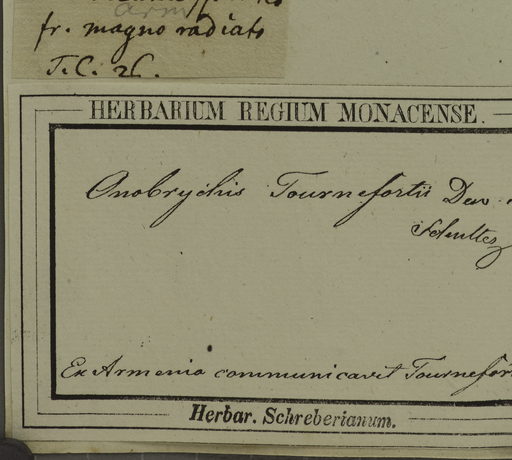 fr. magno radiato
T.C. 26.
HERBARIUM REGIUM MONACENSE.
Onobrychis Tournefortii Dev
Schultes
Ex Armenia communicavit Tournefort
Herbar. Schreberianum.